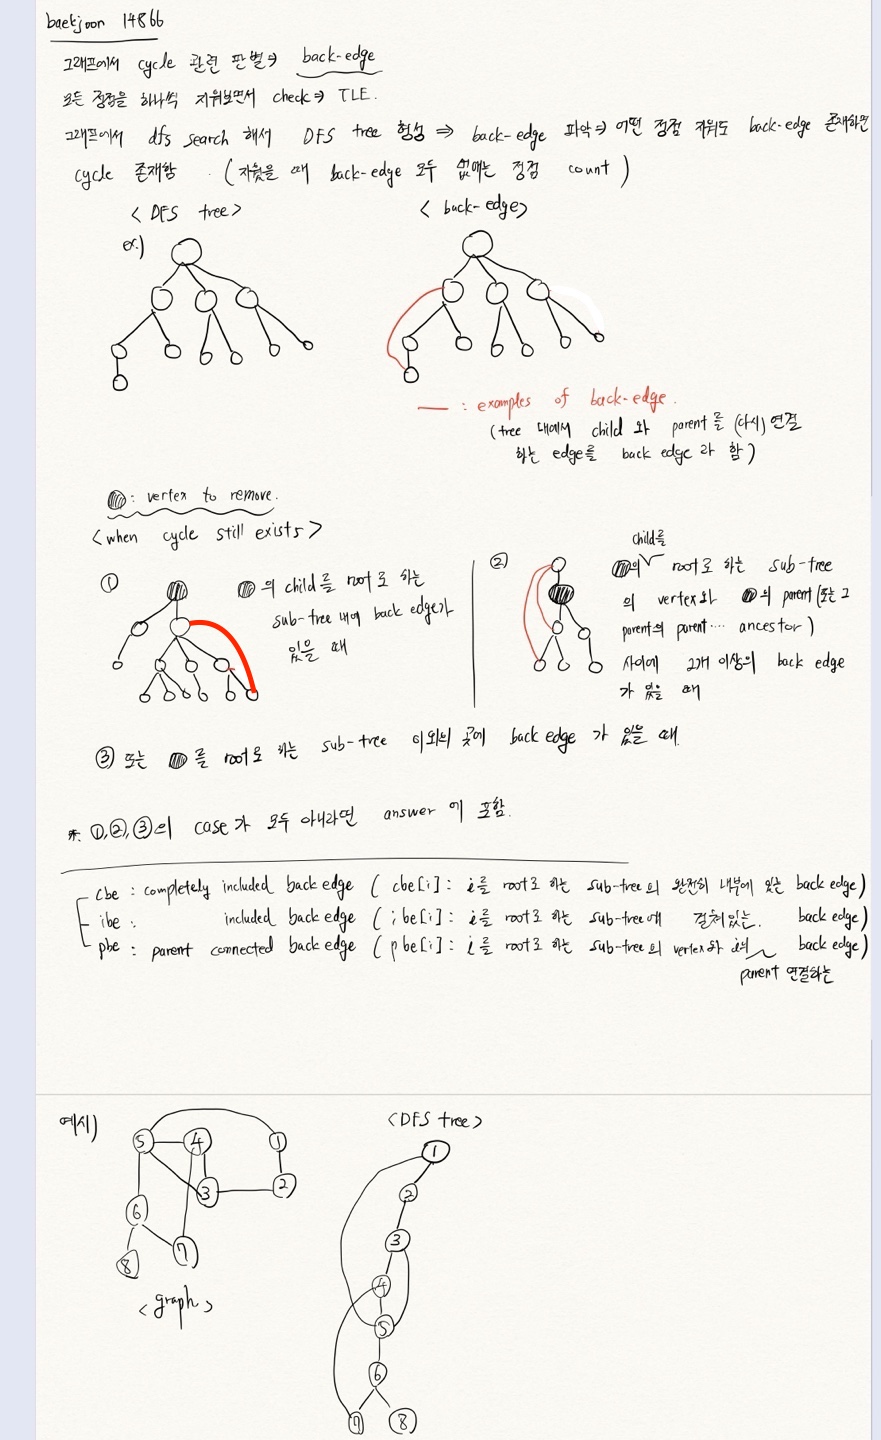 baekjoon 14866
그래프에서 cycle 관련 판별⇒ back-edge
모든 정점을 하나씩 지워보면서 check⇒ TLE.
그래프에서 dfs search 해서 DFS tree 형성 ⇒ back-edge 파악⇒ 어떤 정점 지워도 back-edge 존재하면
cycle 존재함. (지웠을 때 back-edge 모두 없애는 정점 count)
<DFS tree>
<back-edge>
ex)
— : examples of back-edge.
(tree 내에서 child 와 parent를 (다시) 연결
하는 edge를 back edge 라 함)
: vertex to remove.
<when cycle still exists>
①
의 child를 root로 하는
sub-tree 내에 back edge가
있을 때
②
child를
의 root로 하는 sub-tree
의 vertex와 의 parent (또는 그
parent의 parent.... ancestor)
사이에 2개 이상의 back edge
가 있을 때
③ 또는 를 root로 하는 sub-tree 이외의 곳에 back edge 가 있을 때.
※ ①,②,③의 case가 모두 아니라면 answer 에 포함.
cbe : completely included back edge ( cbe[i] : i를 root로 하는 sub-tree의 완전히 내부에 있는 back edge)
ibe : included back edge ( ibe[i] : i를 root로 하는 sub-tree에 걸쳐있는. back edge)
pbe : parent connected back edge ( pbe[i] : i를 root로 하는 sub-tree의 vertex와 i의 back edge)
parent 연결하는
예시)
<DFS tree>
5 4 1
3 2
6
7
8
<graph>
1
2
3
4
5
6
7 8